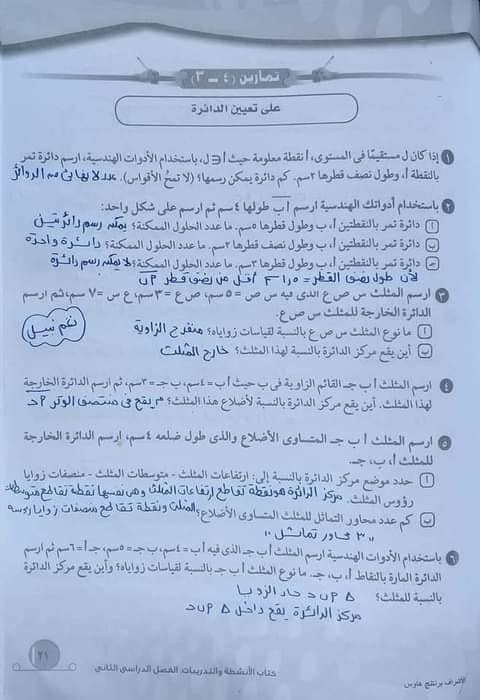 تمارين (٤ – ٣)
على تعيين الدائرة
١ إذا كان ل مستقيمًا في المستوى، أ نقطة معلومة حيث أ ∈ ل، باستخدام الأدوات الهندسية، ارسم دائرة تمر
بالنقطة أ، وطول نصف قطرها ٢سم. كم دائرة يمكن رسمها؟ (لا تمحُ الأقواس). عدد لا نهائى من الدوائر
٢ باستخدام أدواتك الهندسية ارسم أب طولها ٤سم ثم ارسم على شكل واحد:
أ دائرة تمر بالنقطتين أ، ب وطول قطرها ٥سم. ما عدد الحلول الممكنة؟ يمكنه رسم دائرتين
ب دائرة تمر بالنقطتين أ، ب وطول نصف قطرها ٢سم. ما عدد الحلول الممكنة؟ دائرة واحدة
جـ دائرة تمر بالنقطتين أ، ب وطول قطرها ٣سم. ما عدد الحلول الممكنة؟ لا يمكنه رسم دائرة
لأن طول نصف القطر = ١٫٥ سم أقل من نصف قطر أب
٣ ارسم المثلث س ص ع الذى فيه س ص = ٥سم، ص ع = ٣سم، ع س = ٧سم، ثم ارسم
الدائرة الخارجة للمثلث س ص ع.
نغم نبيل
أ ما نوع المثلث س ص ع بالنسبة لقياسات زواياه؟ منفرج الزاوية
ب أين يقع مركز الدائرة بالنسبة لهذا المثلث؟ خارج المثلث
٤ ارسم المثلث أ ب جـ القائم الزاوية فى ب حيث أب = ٤سم، ب جـ = ٣سم، ثم ارسم الدائرة الخارجة
لهذا المثلث. أين يقع مركز الدائرة بالنسبة لأضلاع هذا المثلث؟ م يقع فى منتصف الوتر أحـ
٥ ارسم المثلث أ ب جـ المتساوى الأضلاع والذى طول ضلعه ٤سم، ارسم الدائرة الخارجة
للمثلث أ، ب، جـ.
أ حدد موضع مركز الدائرة بالنسبة إلى: ارتفاعات المثلث - متوسطات المثلث - منصفات زوايا
رؤوس المثلث. مركز الدائرة هو نقطة تقاطع ارتفاعات المثلث وهى نفسها نقطة تقاطع متوسطات
المثلث ونقطة تقاطع منصفات زوايا رءوسه
ب كم عدد محاور التماثل للمثلث المتساوى الأضلاع؟
" ٣ محاور تماثل "
٦ باستخدام الأدوات الهندسية ارسم المثلث أ ب جـ الذى فيه أب = ٤سم، ب جـ = ٥سم، جـ أ = ٦سم ثم ارسم
الدائرة المارة بالنقاط أ، ب، جـ. ما نوع المثلث أ ب جـ بالنسبة لقياسات زواياه؟ وأين يقع مركز الدائرة
بالنسبة للمثلث؟ Δ أ ب حـ حاد الزوايا
مركز الدائرة يقع داخل Δ أ ب حـ
٢١
كتاب الأنشطة والتدريبات: الفصل الدراسى الثانى
الأشراف برنتنج هاوس